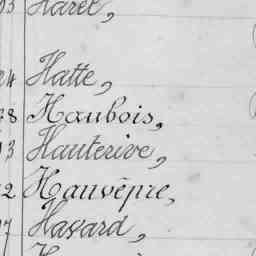 Harel,
Hatte,
Haubois,
Hauterive,
Hauvêpre,
Havard,